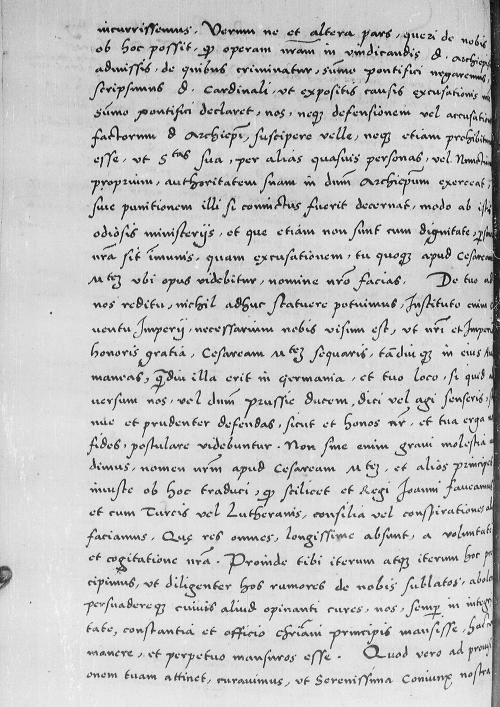 incurrissemus. Verum ne et altera pars, queri de nobis
ob hoc possit, qd operam nram in vindicandis d. Archiepi
admissis, de quibus criminatur, sumo pontifici negaremus,
scripsimus d. Cardinali, ut expositis causis excusationis
sumo pontifici declaret, nos, neqz defensionem vel accusatio
factorum d Archiepi, suscipere velle, neqz etiam prohibitur
esse, ut Stas sua, per alias quasuis personas, vel Nunctium
proprium, authoritatem suam in dnm Archiepum exerceat,
siue punitionem illi si conuictus fuerit decernat, modo ab isti
odiosis ministerijs, et que etiam non sunt cum dignitate,
nra sit imunis, quam excusationem, tu quoqz apud Cesaream
Mtez ubi opus videbitur, nomine nro facias. De tuo ad
nos reditu, nichil adhuc statuere potuimus, Instituto enim
uentu Imperij, necessarium nobis visum est, ut nri et Imperij
honoris gratia, Cesaream Mtez sequaris, tamdiu qz in eius
maneas, qmdiu illa erit in Germania, et tuo loco, si quid
uersum nos, vel dnm Prussie ducem, dici vel agi senseris,
nue et prudenter defendas, sicut et honos nr, et tua erga
fides, postulare videbuntur. Non sine enim graui molestia
dimus, nomen nrm apud Cesaream Mtez, et alios principes
iniuste ob hoc traduci, qd scilicet et Regi Joanni faueamus
et cum Turcis vel Lutheranis, consilia vel conspirationes
faciamus. Que res omnes, longissime absunt, a voluntate
et cogitatione nra. Proinde tibi iterum atqz iterum hoc
cipimus, ut diligenter hos rumores de nobis sublatos,
persuadereqz cuiuis aliud opinanti cures, nos, semp in integri
tate, constantia et officio chriani principis mansisse,
manere, et perpetuo mansuros esse. Quod vero ad proui
onem tuam attinet, curauimus, ut Serenissima Coniunx nostra